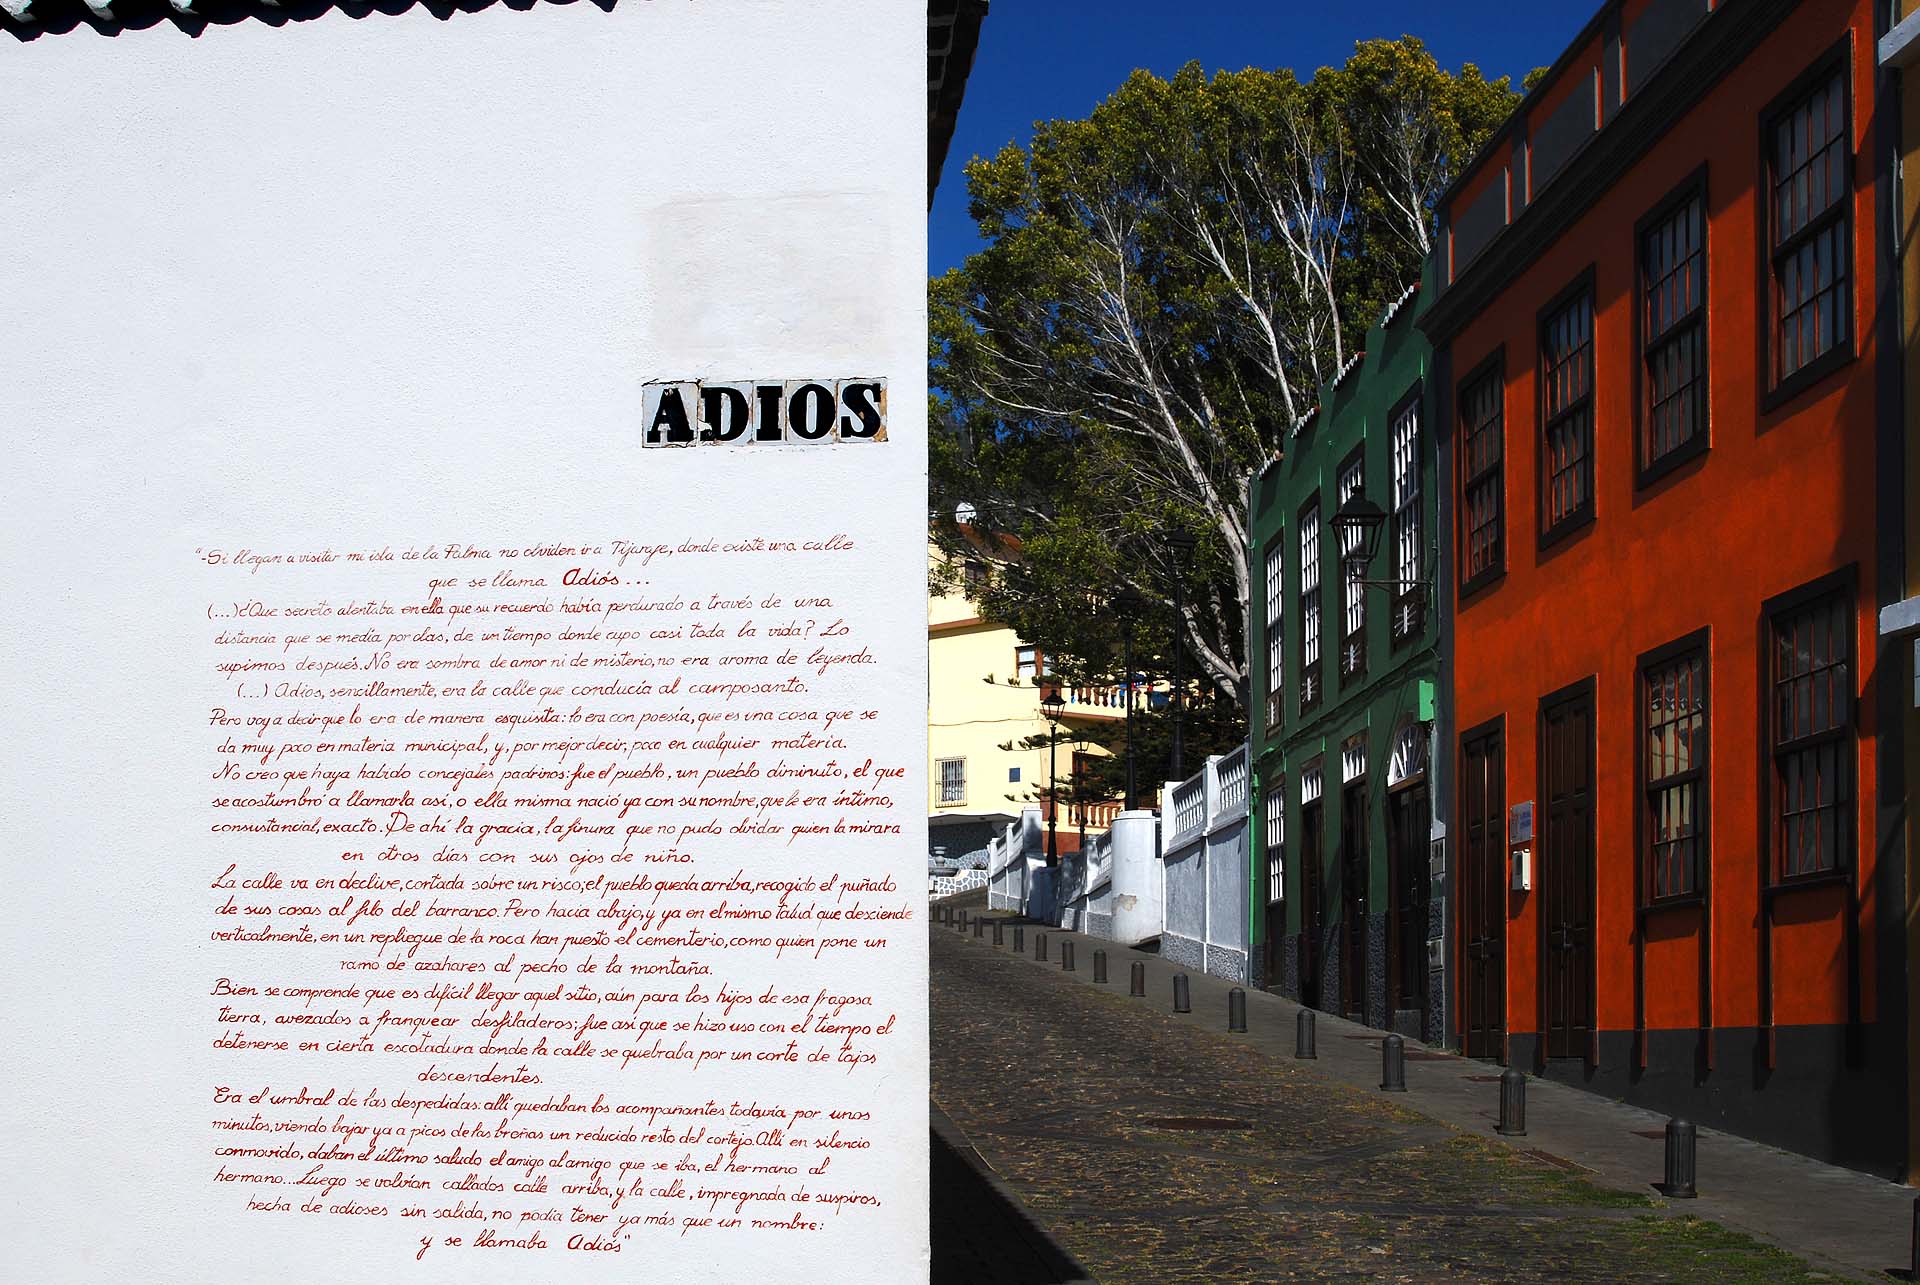 ADIOS
"-Si llegan a visitar mi isla de la Palma no olviden ir a Tijarafe, donde existe una calle
que se llama Adiós...
(...)¿Que secreto alentaba en ella que su recuerdo había perdurado a través de una
distancia que se medía por olas, de un tiempo donde cupo casi toda la vida? Lo
supimos después. No era sombra de amor ni de misterio, no era aroma de leyenda.
(...) Adios, sencillamente, era la calle que conducía al camposanto.
Pero voy a decir que lo era de manera esquisita: lo era con poesía, que es una cosa que se
da muy poco en materia municipal, y, por mejor decir, poco en cualquier materia.
No creo que haya habido concejales padrinos: fue el pueblo, un pueblo diminuto, el que
se acostumbró a llamarla así, o ella misma nació ya con su nombre, que le era íntimo,
consustancial, exacto. De ahí la gracia, la finura que no pudo olvidar quien la mirara
en otros días con sus ojos de niño.
La calle va en declive, cortada sobre un risco; el pueblo queda arriba, recogido el puñado
de sus cosas al filo del barranco. Pero hacia abajo, y ya en el mismo talud que desciende
verticalmente, en un repliegue de la roca han puesto el cementerio, como quien pone un
ramo de azahares al pecho de la montaña.
Bien se comprende que es difícil llegar aquel sitio, aún para los hijos de esa fragosa
tierra, avezados a franquear desfiladeros; fue así que se hizo uso con el tiempo el
detenerse en cierta escotadura donde la calle se quebraba por un corte de tajos
descendentes.
Era el umbral de las despedidas: allí quedaban los acompañantes todavía por unos
minutos, viendo bajar ya a picos de las breñas un reducido resto del cortejo. Allí en silencio
conmovido, daban el último saludo el amigo al amigo que se iba, el hermano al
hermano... Luego se volvían callados calle arriba, y la calle, impregnada de suspiros,
hecha de adioses sin salida, no podía tener ya más que un nombre:
y se llamaba Adiós"